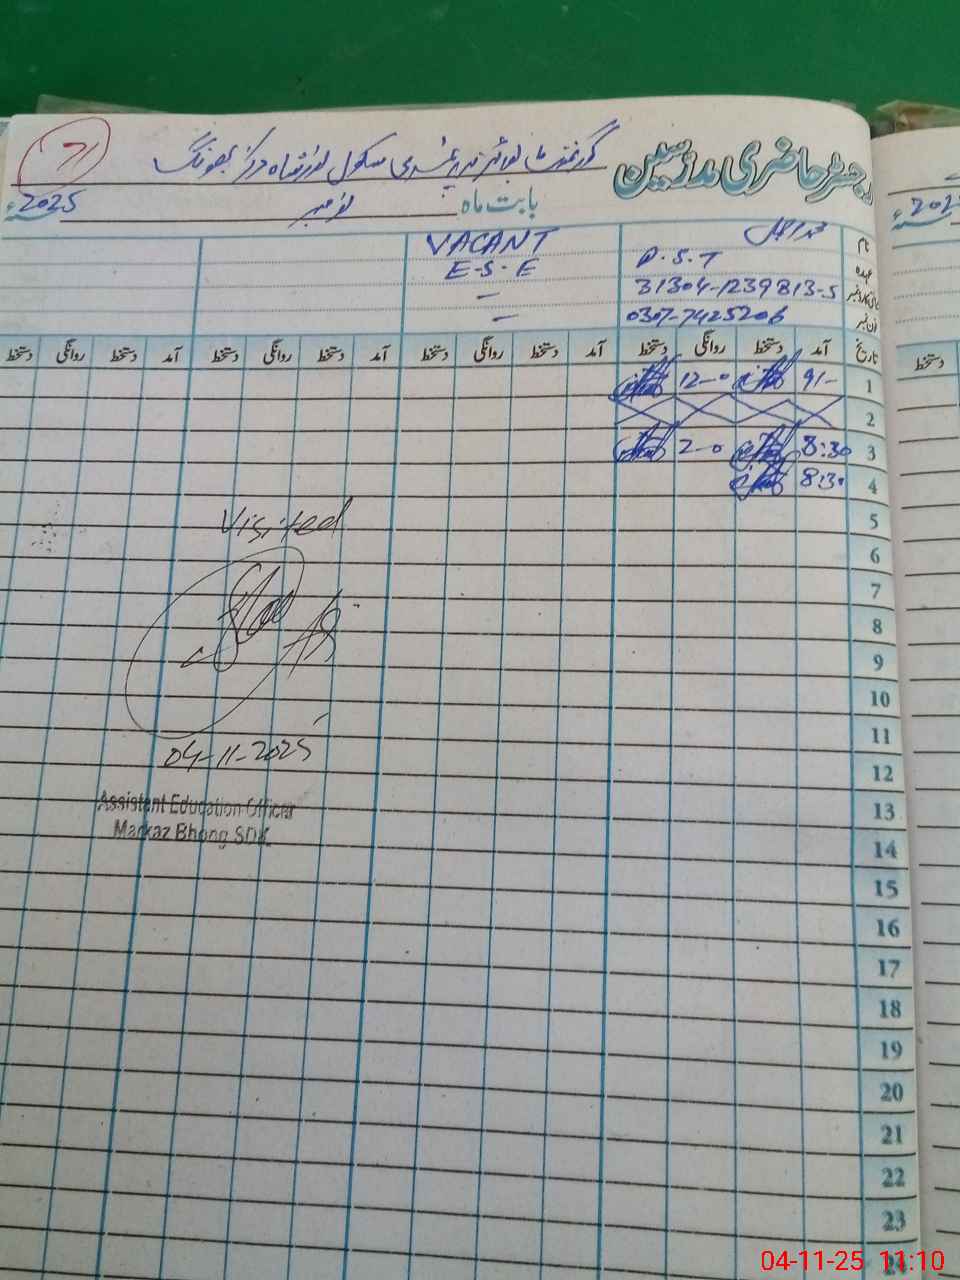 رجسٹر حاضری مدرّسین
گورنمنٹ بوائز پرائمری سکول نور شاہ مرکز بھونگ
71
بابت ماہ نومبر 2025ء
نام
VACANT
عہدہ P.S.T
E-S-E
شناختی کارڈ نمبر 31304-1239813-5
-
فون نمبر 0307-7425206
-
تاریخ آمد دستخط روانگی دستخط آمد دستخط روانگی دستخط آمد دستخط روانگی دستخط
1 9/- 12-0
2
3 8:30 2-0
4 8:30
5
6
7
8
9
10
11
12
13
14
15
16
17
18
19
20
21
22
23
24
Visited
04-11-2025
Assistent Education Officer
Markaz Bhong SDK
2025
دستخط
04-11-25 11:10